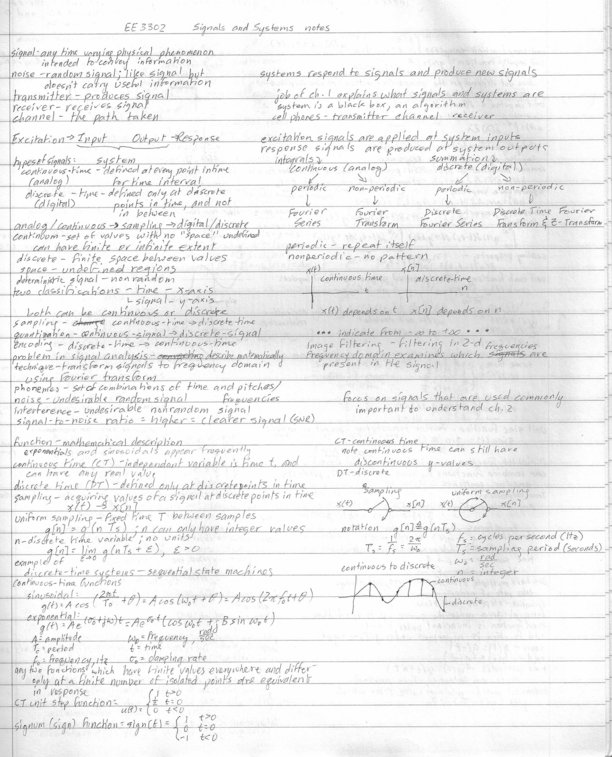 EE 3302 Signals and Systems notes
signal - any time varying physical phenomenon
intended to convey information
noise - random signal; like signal but
doesn't carry useful information
transmitter - produces signal
receiver - receives signal
channel - the path taken
systems respond to signals and produce new signals
job of ch. 1 explains what signals and systems are
system is a black box, an algorithm
cell phones - transmitter channel receiver
Excitation → Input Output → Response
system
excitation signals are applied at system inputs
response signals are produced at system outputs
types of signals:
continuous-time - defined at every point in time
(analog) for time interval
discrete - time - defined only at discrete
(digital) points in time, and not
in between
integrals summations
continuous (analog) discrete (digital)
periodic non-periodic periodic non-periodic
Fourier Fourier Discrete Discrete Time Fourier
Series Transform Fourier Series Transform & Z-Transform
analog/continuous → sampling → digital/discrete
continuum - set of values with no "space" undefined
can have finite or infinite extent
discrete - finite space between values
space - undefined regions
deterministic signal - non random
two classifications - time - x-axis
signal - y-axis
both can be continuous or discrete
periodic - repeat itself
nonperiodic - no pattern
x(t) x[n]
continuous time discrete-time
t n
x(t) depends on t x[n] depends on n
sampling - continuous-time → discrete-time
quantization - continuous-signal → discrete-signal
encoding - discrete-time → continuous-time
problem in signal analysis - describe mathematically
technique - transform signals to frequency domain
using Fourier transform
••• indicate from -∞ to +∞ •••
Image Filtering - filtering in 2-d
Frequency domain examines which frequencies are
present in the signal
phonemes - set of combinations of time and pitches/
frequencies
noise - undesirable random signal
interference - undesirable nonrandom signal
signal-to-noise ratio = higher = clearer signal (SNR)
focus on signals that are used commonly
important to understand ch. 2
function - mathematical description
exponentials and sinusoidals appear frequently
continuous time (CT) - independent variable is time t, and
can have any real value
discrete time (DT) - defined only at discrete points in time
sampling - acquiring values of a signal at discrete points in time
x(t) → x[n]
uniform sampling - fixed time T between samples
g[n] = g(nTs) ; n can only have integer values
n - discrete time variable; no units!
g[n] = lim g(nTs + ε), ε>0
ε→0
example of
discrete-time systems - sequential state machines
CT - continuous time
note continuous time can still have
discontinuous y-values
DT - discrete
sampling uniform sampling
x(t) x[n] x(t) x[n]
notation g[n] ≜ g(nTs)
Ts = 1/fs = 2π/ωs
fs = cycles per second (Hz)
Ts = sampling period (seconds)
ωs = rad/sec
n = integer
continuous to discrete
continuous
discrete
continuous-time functions
sinusoidal:
g(t) = A cos (2πt/To + θ) = A cos (ωot + θ) = A cos (2πfot + θ)
exponential:
g(t) = Ae^(σo + jωo)t = Ae^σot (cos ωot + j B sin ωot)
A = amplitude ωo = frequency, rad/sec
To = period t = time
fo = frequency, Hz σo = damping rate
any two functions which have finite values everywhere and differ
only at a finite number of isolated points are equivalent
in response
CT unit step function: u(t) = { 1 t>0
½ t=0
0 t<0
signum (sign) function = sign(t) = { 1 t>0
0 t=0
-1 t<0